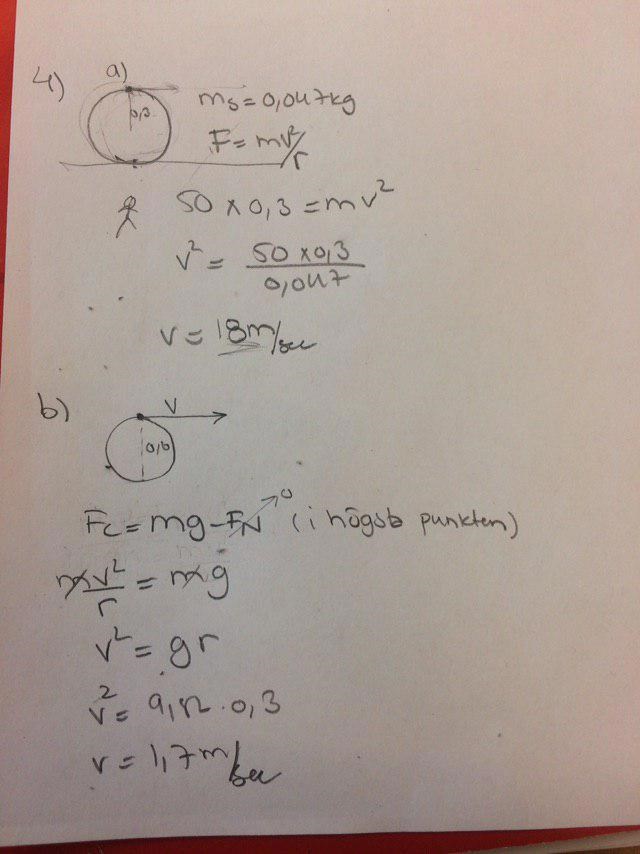 4) a)
0,3
ms = 0,047kg
F = mv²/r
50 × 0,3 = mv²
v² = 50 × 0,3 / 0,047
v = 18m/sec
b)
v
0,6
Fc = mg - FN → 0 (i högsta punkten)
mv²/r = mg
v² = gr
v² = 9,82 · 0,3
v = 1,7m/sec